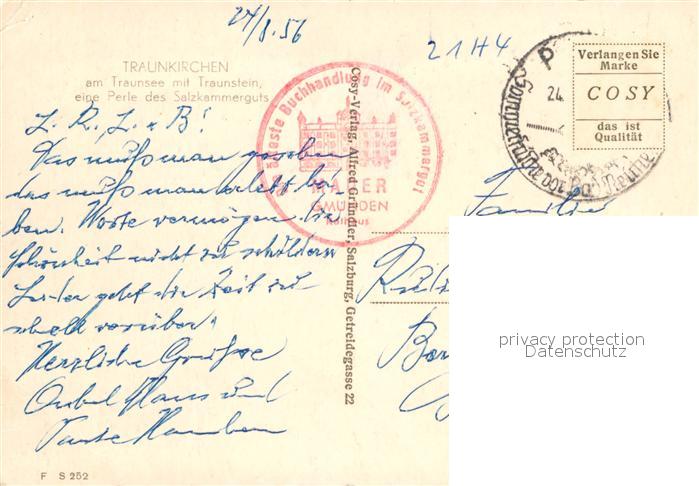 24/8.56
21H4
TRAUNKIRCHEN
am Traunsee mit Traunstein,
eine Perle des Salzkammerguts
Verlangen Sie
Marke
COSY
das ist
Qualität
P
24.
älteste Buchhandlung im Salzkammergut
MADER
GMUNDEN
Rathaus
Cosy-Verlag, Alfred Gründler, Salzburg, Getreidegasse 22
L. R., L. u B!
Das muß man gesehen
das muß man erlebt ha-
ben. Worte vermögen die
Schönheit nicht zu schildern
Leider geht die Zeit zu
schnell vorüber.
Herzliche Grüße
Onkel Hans und
Tante
Familie
privacy protection
Datenschutz
F S 252